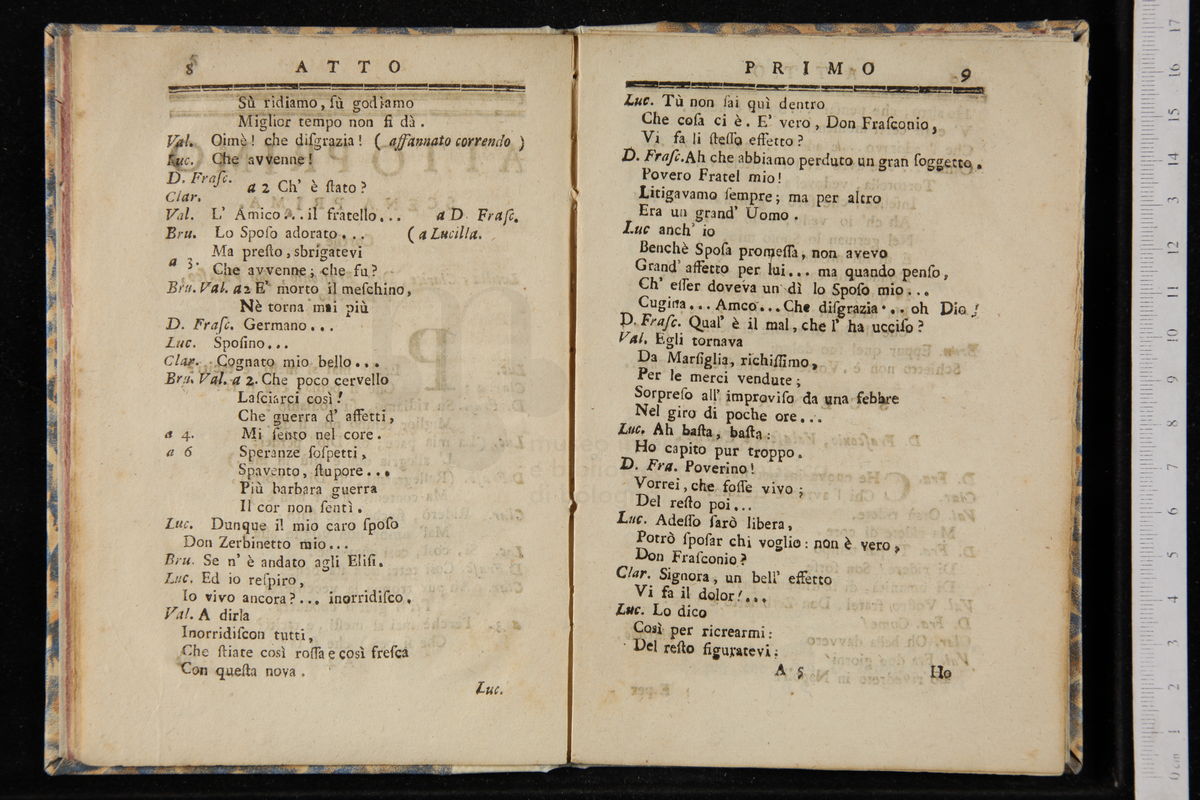 8 ATTO
Sù ridiamo, ſù godiamo
Miglior tempo non ſi dà.
Val. Oimè! che diſgrazia! ( affannato correndo )
Luc. Che avvenne!
D. Fraſc.
a 2 Ch' è ſtato?
Clar.
Val. L' Amico... il fratello... a D. Fraſc.
Bru. Lo Spoſo adorato... ( a Lucilla.
Ma preſto, sbrigatevi
a 3.
Che avvenne; che fu?
Bru. Val. a 2 E' morto il meſchino,
Nè torna mai più
D. Fraſc. Germano...
Luc. Spoſino...
Clar. Cognato mio bello...
Bru. Val. a 2. Che poco cervello
Laſciarci così!
Che guerra d' affetti,
a 4. Mi ſento nel core.
a 6 Speranze ſoſpetti,
Spavento, ſtupore...
Più barbara guerra
Il cor non ſentì.
Luc. Dunque il mio caro ſpoſo
Don Zerbinetto mio...
Bru. Se n' è andato agli Eliſi.
Luc. Ed io reſpiro,
Io vivo ancora?... inorridiſco.
Val. A dirla
Inorridiſcon tutti,
Che ſtiate così roſſa e così freſca
Con queſta nova.
Luc.
PRIMO 9
Luc. Tù non ſai quì dentro
Che coſa ci è. E' vero, Don Fraſconio,
Vi fa li ſteſſo effetto?
D. Fraſc. Ah che abbiamo perduto un gran ſoggetto.
Povero Fratel mio!
Litigavamo ſempre; ma per altro
Era un grand' Uomo.
Luc anch' io
Benchè Spoſa promeſſa, non avevo
Grand' affetto per lui... ma quando penſo,
Ch' eſſer doveva un dì lo Spoſo mio...
Cugina... Amco... Che diſgrazia... oh Dio!
D. Fraſc. Qual' è il mal, che l' ha ucciſo?
Val. Egli tornava
Da Marſiglia, richiſſimo,
Per le merci vendute;
Sorpreſo all' improviſo da una febbre
Nel giro di poche ore...
Luc. Ah baſta, baſta:
Ho capito pur troppo.
D. Fra. Poverino!
Vorrei, che foſſe vivo;
Del reſto poi...
Luc. Adeſſo farò libera,
Potrò ſpoſar chi voglio: non è vero,
Don Fraſconio?
Clar. Signora, un bell' effetto
Vi fa il dolor!...
Luc. Lo dico
Così per ricrearmi:
Del reſto figuratevi:
A 5 Ho